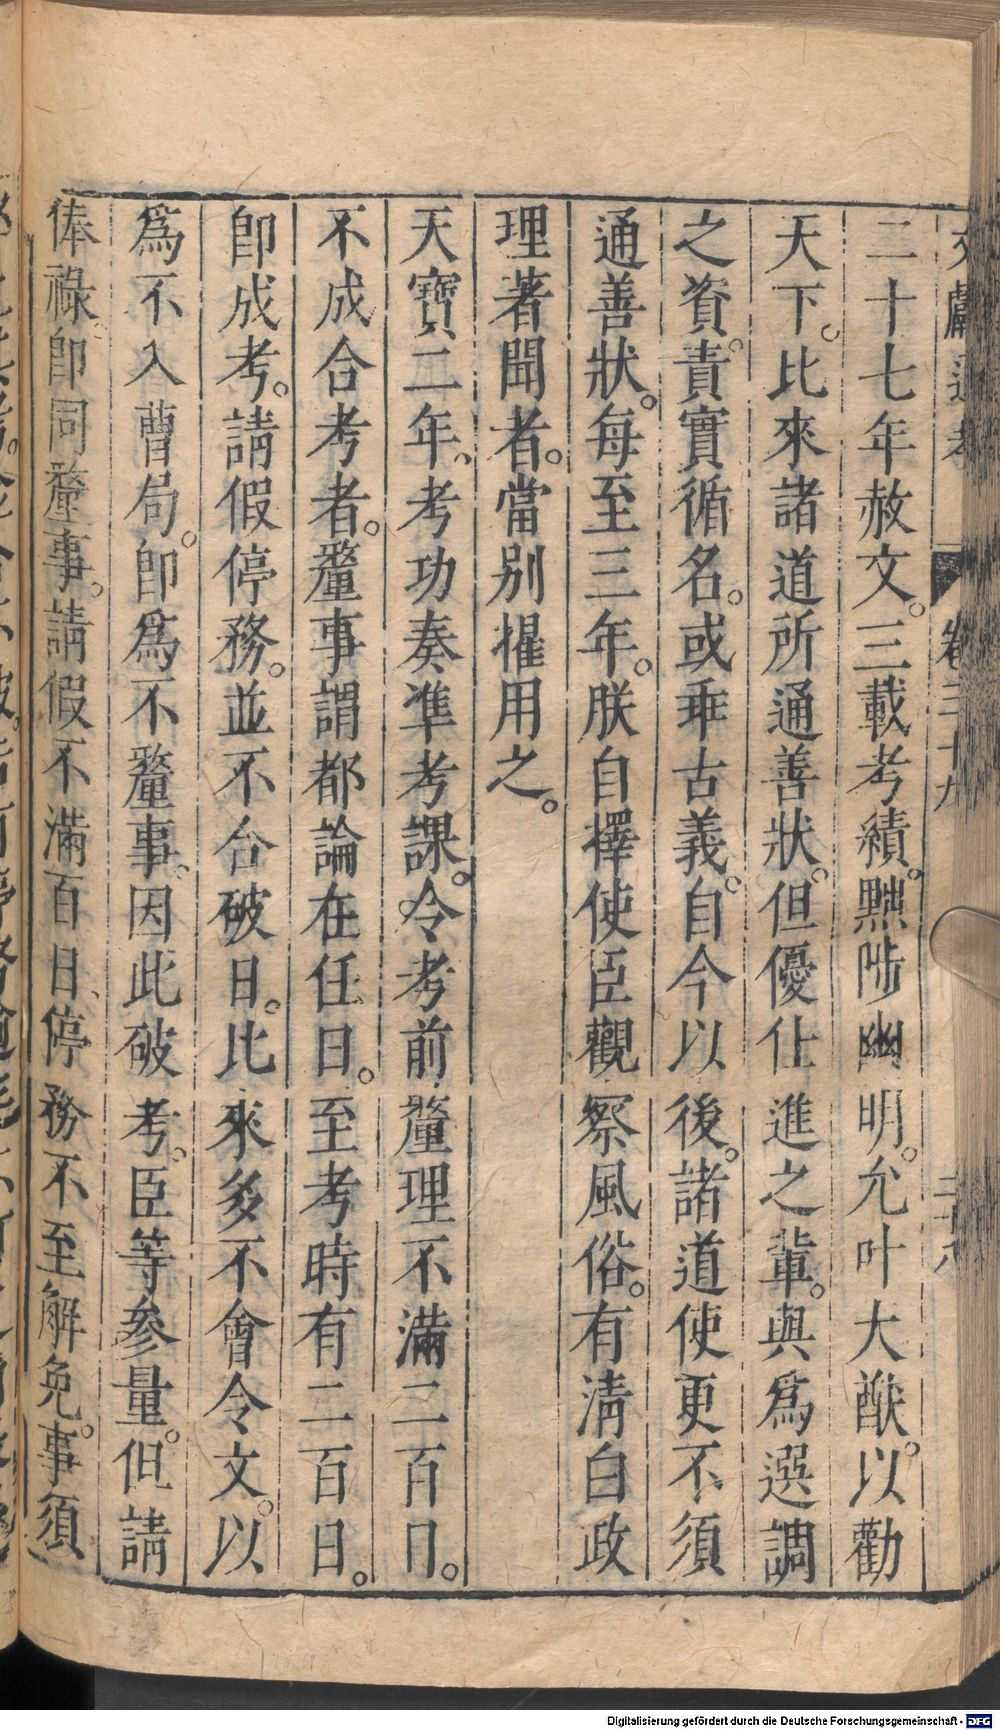 文獻通考 卷三十九 二十六
二十七年赦文。三載考績。黜陟幽明。允叶大猷。以勸
天下。比來諸道所通善狀。但優仕進之輩。與爲選調
之資。責實循名。或乖古義。自今以後。諸道使更不須
通善狀。每至三年。朕自擇使臣觀察風俗。有清白政
理著聞者。當別擢用之。
天寶二年、考功奏準考課。令考前釐理不滿二百日。
不成合考者。釐事謂都論在任日。至考時有二百日。
卽成考。請假停務。並不合破日。比來多不會令文。以
爲不入曹局。卽爲不釐事、因此破考。臣等參量。但請
俸祿。卽同釐事。請假不滿百日、停務不至解免。事須
Digitalisierung gefördert durch die Deutsche Forschungsgemeinschaft - DFG